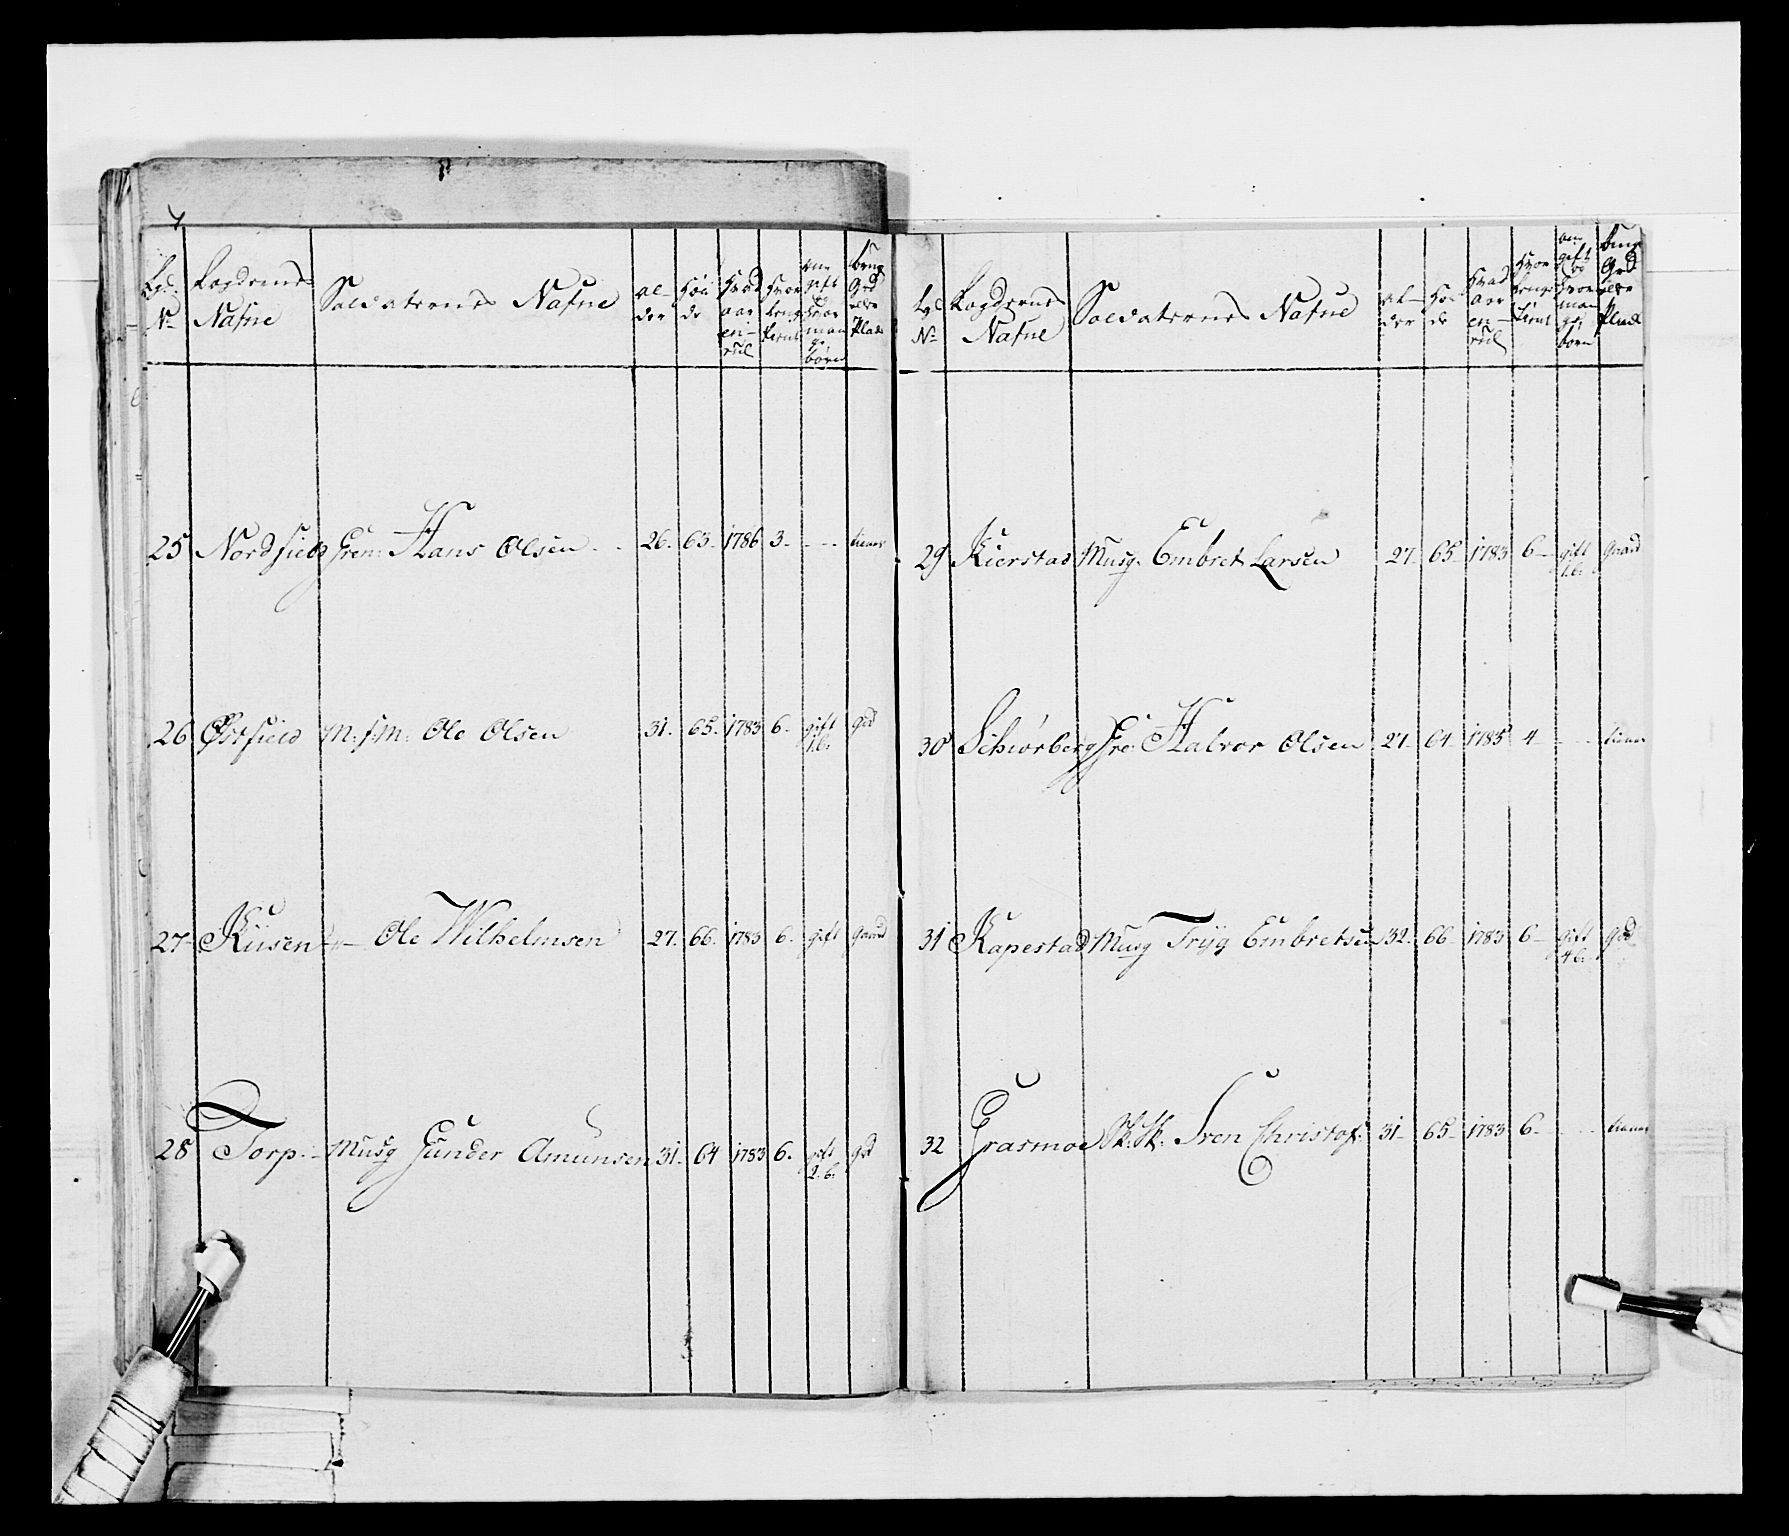 Lgd: N: Lægdernes Nafne Soldaternes Nafne al- der Høi de Hvad aar en- rul Hvor lenge tient om gift og hvor mange børn brug Grd eller Plads
25 Nordfield Gren: Hans Olsen 26. 63. 1786 3. - - - tiener
26 Østfield M:f:M: Ole Olsen 31. 65. 1783 6. gift 1.b: grd
27 Kiisen — Ole Wilhelmsen 27. 66. 1783 6. gift gaard
28 Torp. Musq Gunder Amunsen 31. 64 1783 6. gift 2.b: grd
Lgd N: Lægdernes Nafne Soldaternes Nafne al- der Høi de Hvad aar en- rul Hvor lenge tient om gift og hvor mange børn brug Grd eller Plads
29 Kierstad Musq. Embret Larsen 27- 65- 1783 6- gift 1.b: gaard
30 Schiørberg Gre: Halvor Olsen 27- 64 1785 4 - - - tiener
31 Rapestad Musq Tryg Embretsen 32. 66 1783 6- gift 4 b: grd
32 Grasmoe Sk:Sk: Sven Christof: 31- 65- 1783 6- - - tiener